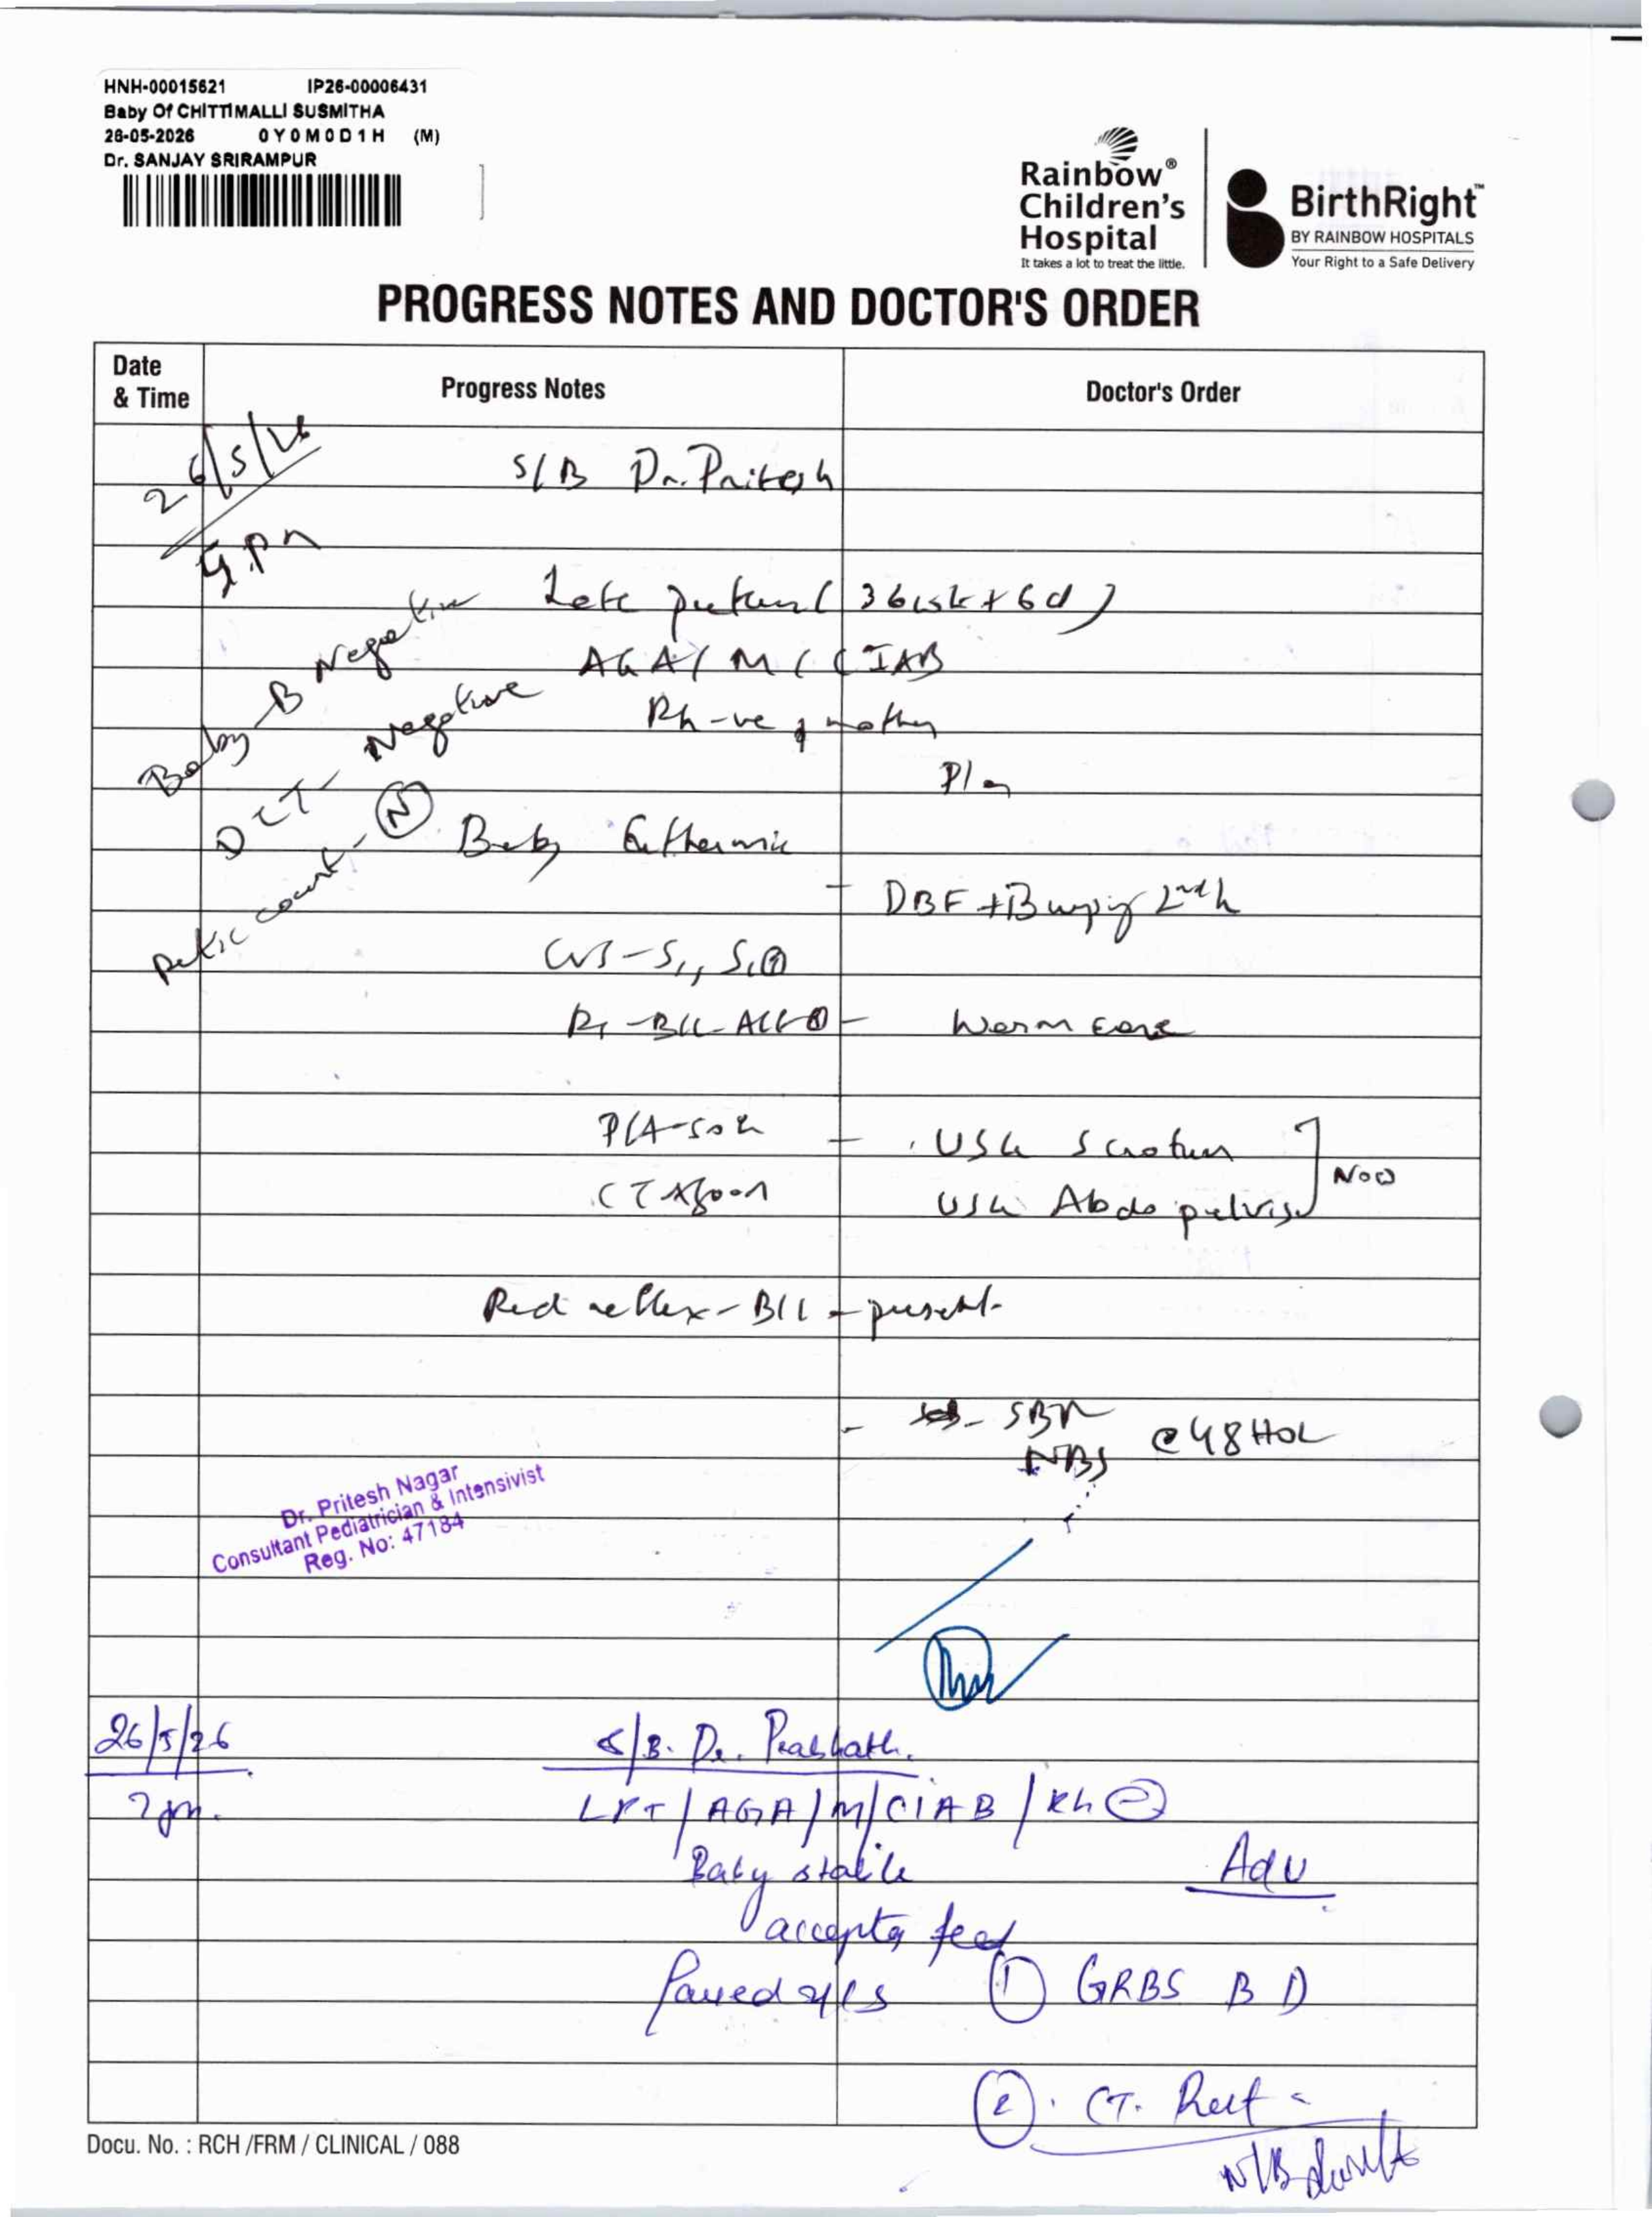 HNH-00015621 IP26-00006431
Baby Of CHITTIMALLI SUSMITHA
26-05-2026 0Y0M0D1H (M)
Dr. SANJAY SRIRAMPUR
Rainbow®
Children's
Hospital
It takes a lot to treat the little.
BirthRight™
BY RAINBOW HOSPITALS
Your Right to a Safe Delivery
PROGRESS NOTES AND DOCTOR'S ORDER
Date
& Time
Progress Notes
Doctor's Order
26/5/26
S/B Dr. Pritesh
Late preterm (36wk+6d)
AGA/M/CIAB
Rh-ve mother
Baby B Negative
DCT- Negative
Retic count- N
Plan
Baby Euthermic
- DBF + Burping 2ndh
CVS-S1, S2
B/L-AE
- Warm care
P/A-Soft
- USG Scrotum
USG Abdo pelvis
Now
Red reflex-B/L-present
- SBR
NBS
@48HOL
Dr. Pritesh Nagar
Consultant Pediatrician & Intensivist
Reg. No: 47184
26/5/26
7pm.
S/B. Dr. Prashath.
LPT/AGA/M/CIAB/Rh⊖
Baby stable
Adv
accepts feed
Passed
① GRBS BD
②. CT.
N/B
Docu. No. : RCH /FRM / CLINICAL / 088